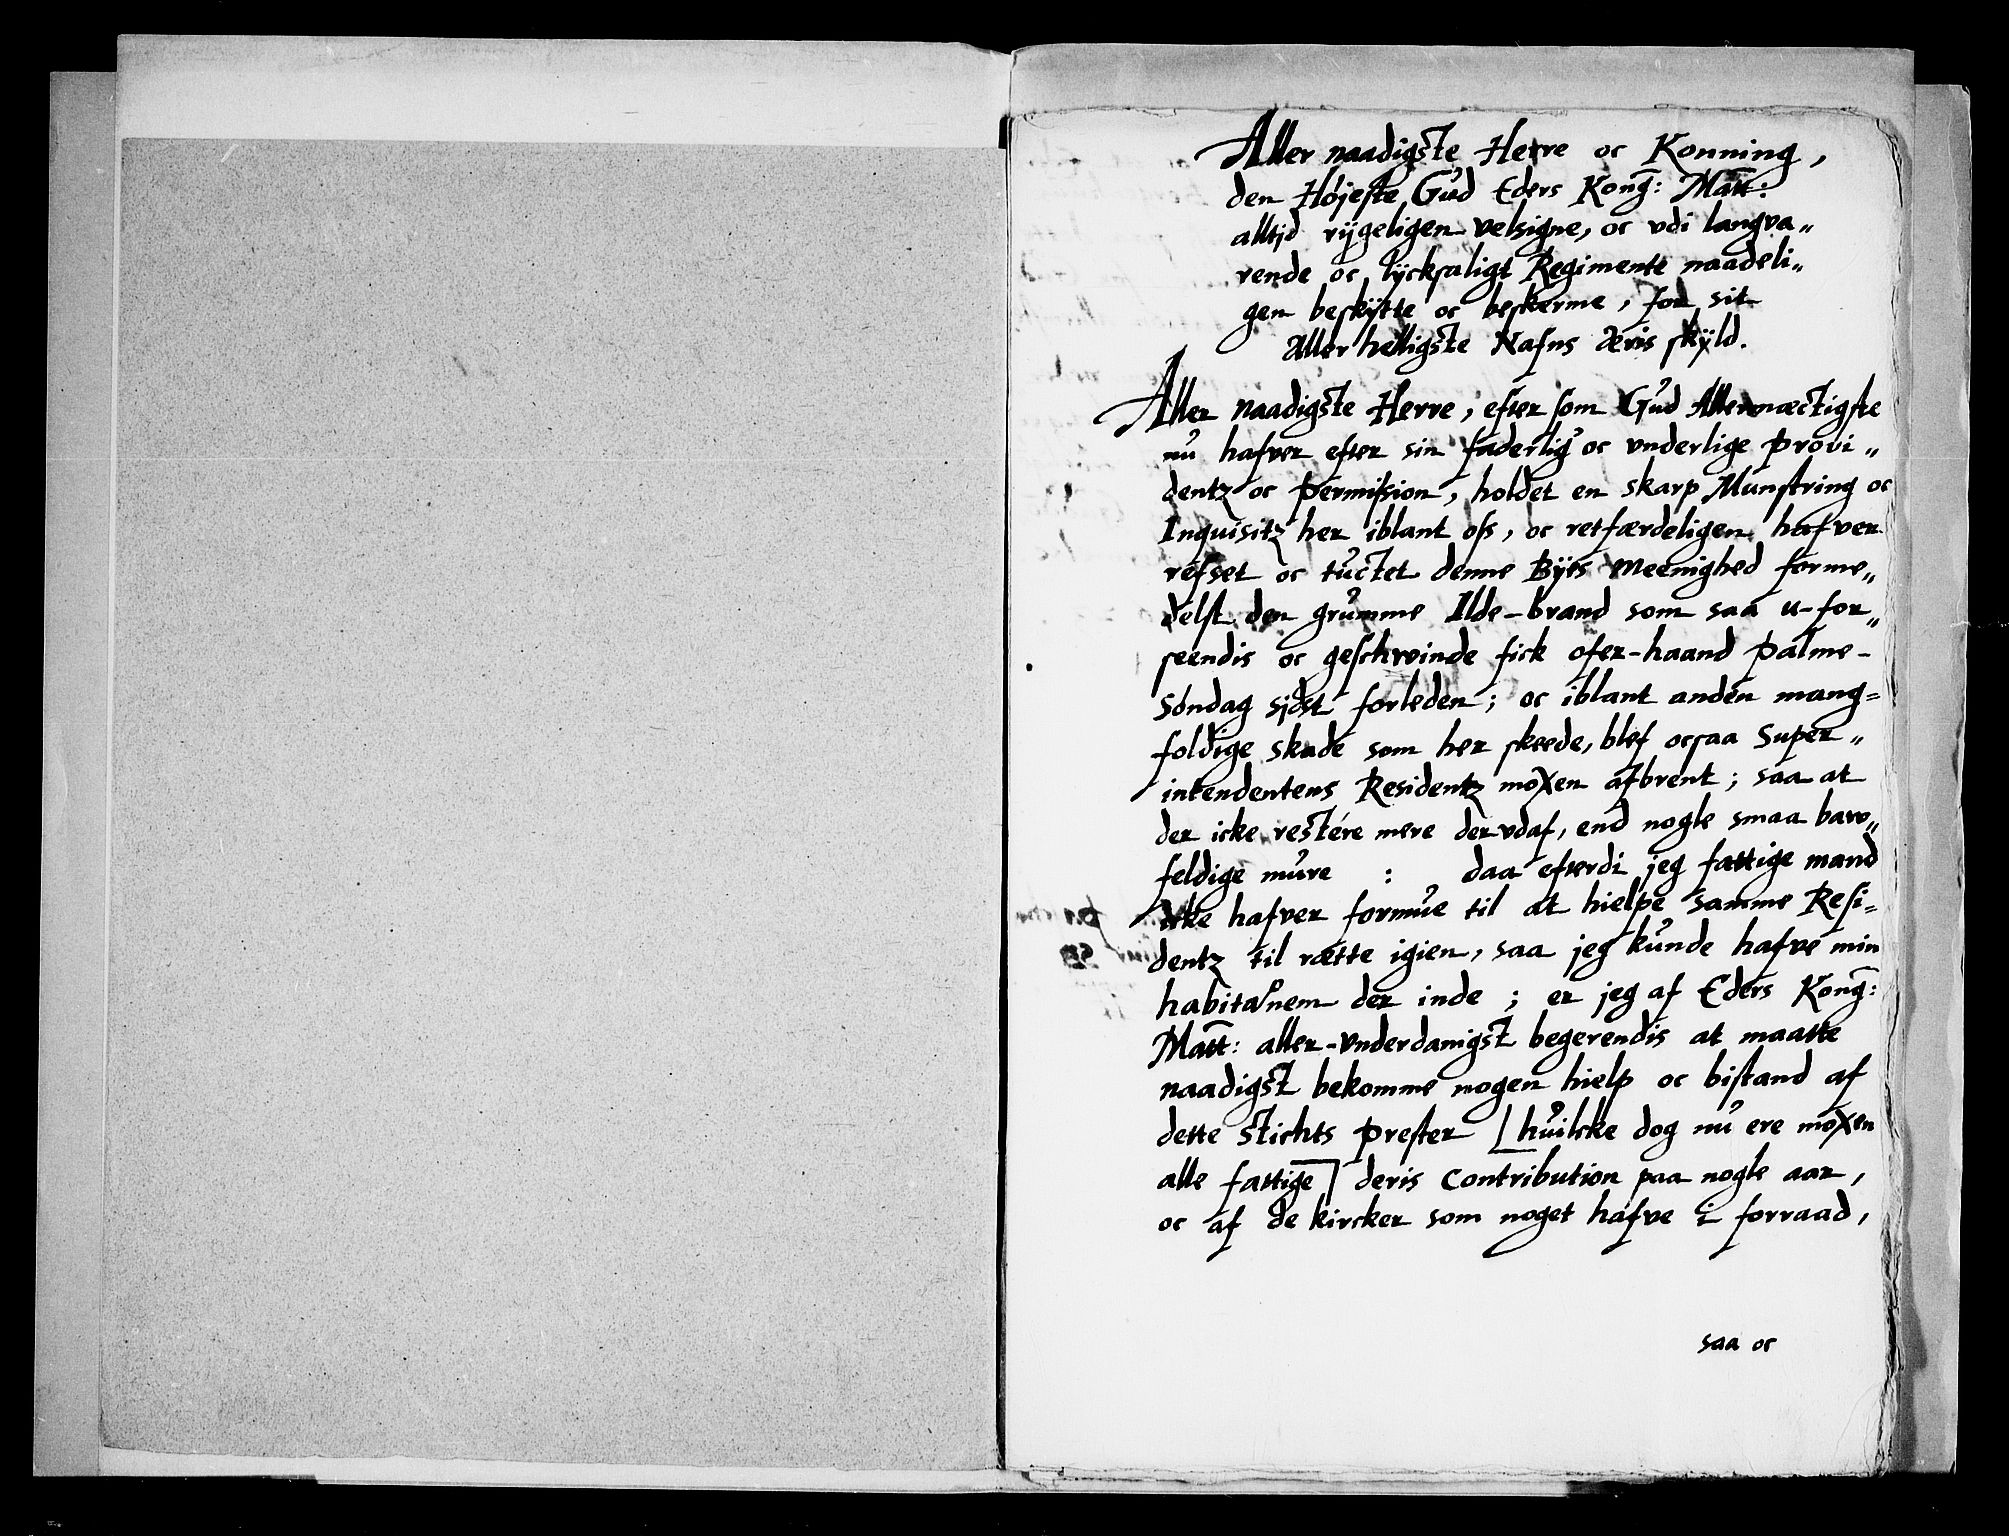 Aller naadigste Herre oc Konning,
den Højeste Gud Eders Kong: Matt:
alltjd rijgeligen velsigne, oc vdi langva„
rende oc lyckſaligt Regimente naadeli„
gen beskytte oc beskerme, for sit
Aller helligste Nafns Æris skyld.
Aller naadigste Herre, efter som Gud Allermæctigste
nu hafver efter sin faderlig oc vnderlige provi„
dentz oc permission, holdet en skarp Munstring oc
Inquisitz her iblant oss, oc retfærdeligen hafver
refset oc tuctet denne Byes Meenighed forme„
delst den grumme Ilde-brand som saa u-for„
seendis oc geschwinde fick ofer-haand Palme-
Søndag sjdst forleden; oc iblant anden mang=
foldige skade som her skeede, blef ocsaa Super„
intendentens Residentz moxen afbrent; saa at
der icke restére mere der vdaf, end nogle smaa baw„
feldige mure : daa efterdi jeg fattige mand
icke hafver formue til at hielpe samme Resi=
dentz til rætte igien, saa jeg kunde hafve min
habitaõnem der inde ; er jeg af Eders Kong:
Matt: aller-vnderdanigst begerendis at maatte
naadigst bekomme nogen hielp oc bistand af
dette Stichts prester [huilcke dog nu ere moxen
alle fattige] deris Contribution paa nogle aar,
oc af de kircker som noget hafve i forraad,
saa oc